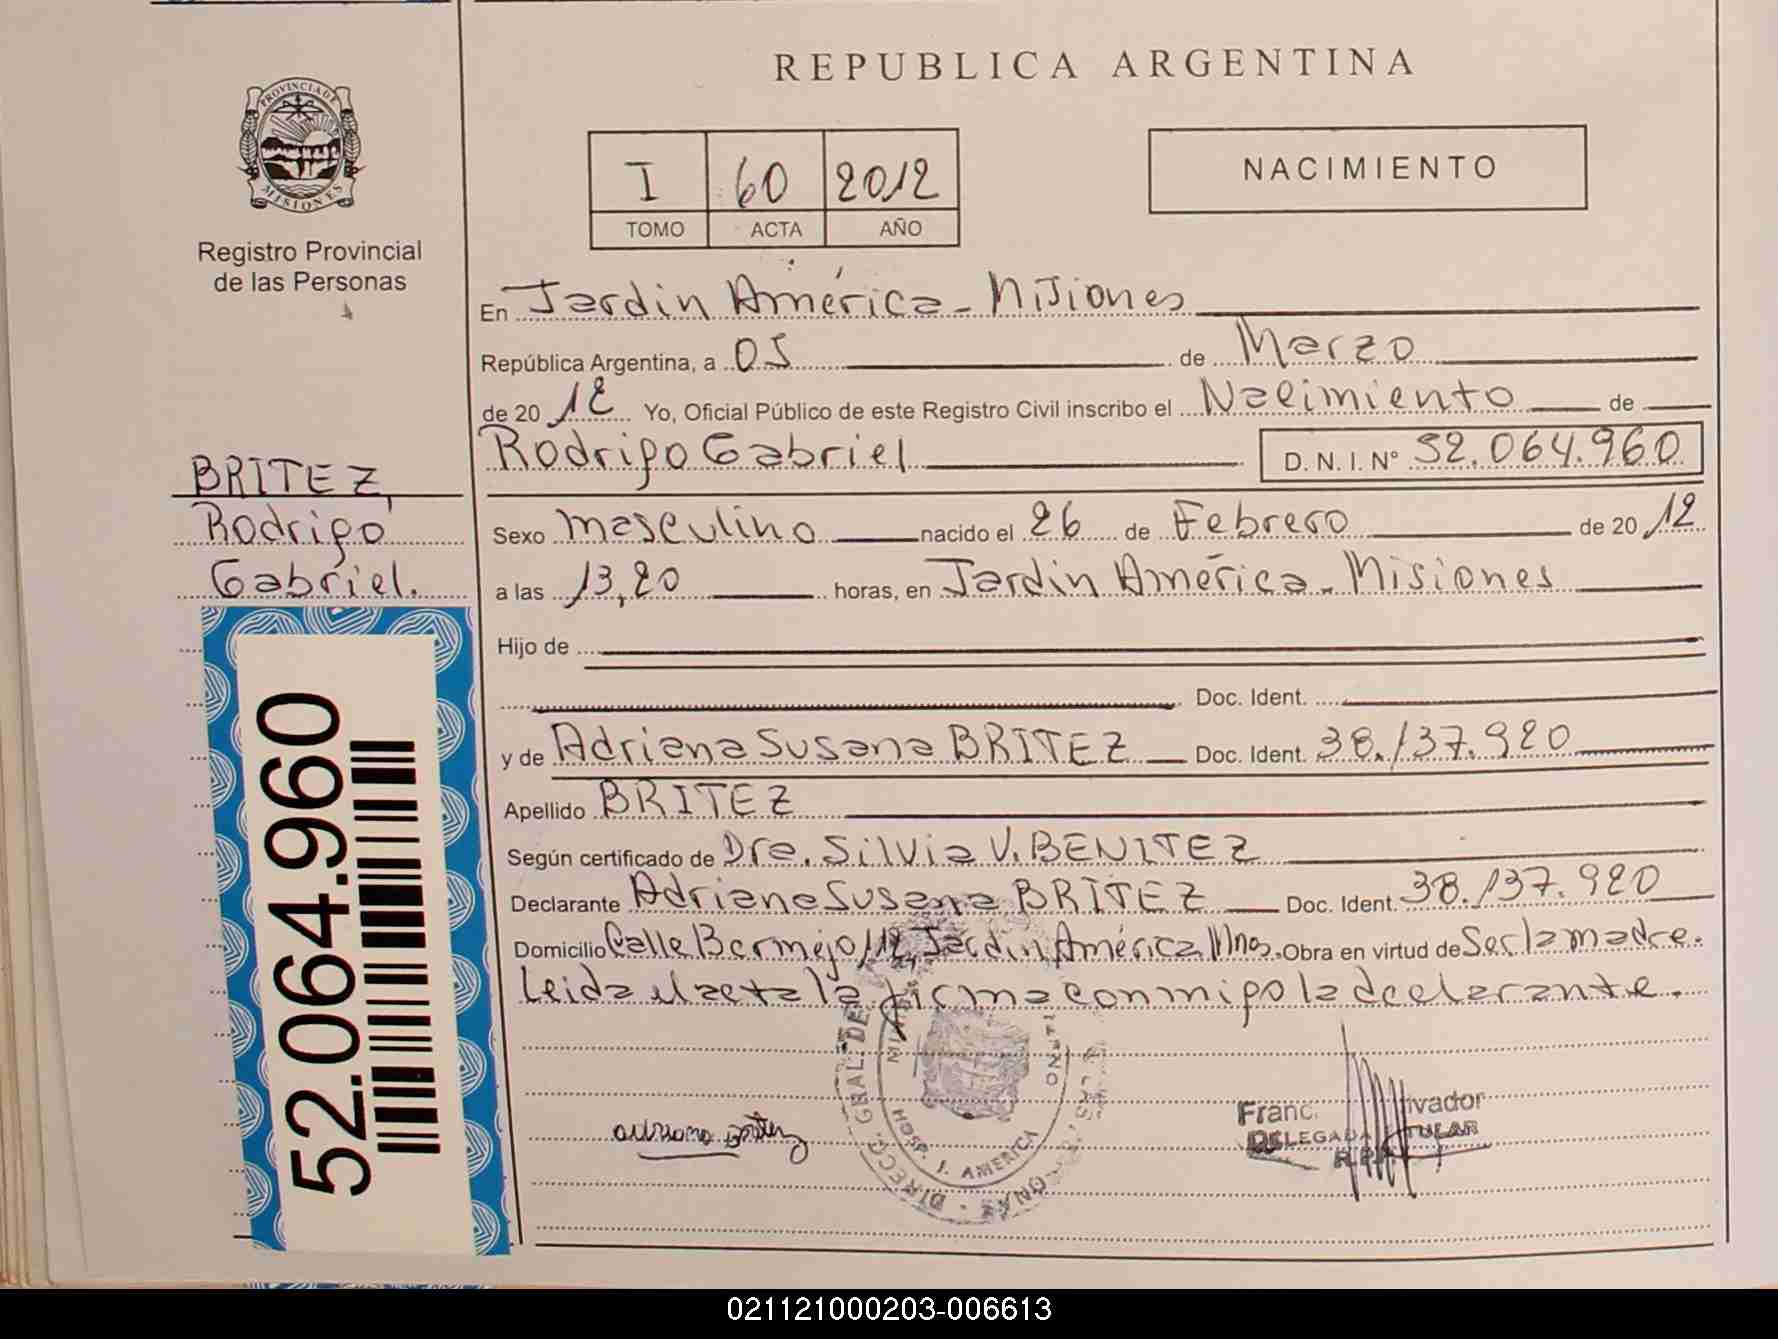 REPUBLICA ARGENTINA
PROVINCIA DE MISIONES
Registro Provincial
de las Personas
I 60 2012
TOMO ACTA AÑO
NACIMIENTO
En Jardin América - Misiones
República Argentina, a 05 de Marzo
de 2012 Yo, Oficial Público de este Registro Civil inscribo el Nacimiento de
Rodrigo Gabriel D.N.I. N° 52.064.960
BRITEZ,
Rodrigo
Gabriel.
Sexo masculino nacido el 26 de Febrero de 2012
a las 13,20 horas, en Jardin América - Misiones
Hijo de
Doc. Ident.
y de Adriana Susana BRITEZ Doc. Ident. 38.137.920
Apellido BRITEZ
Según certificado de Dra. Silvia V. BENITEZ
Declarante Adriana Susana BRITEZ Doc. Ident. 38.137.920
Domicilio Calle Bermejo 112, Jardin América, Mnes. Obra en virtud de Ser la madre.
Leida el acta la firma conmigo la declarante.
52.064.960
DIRECC. GRAL. DE
J. AMERICA
Adriana Britez
Franc. ivador
DELEGADA TITULAR
R.P.
021121000203-006613